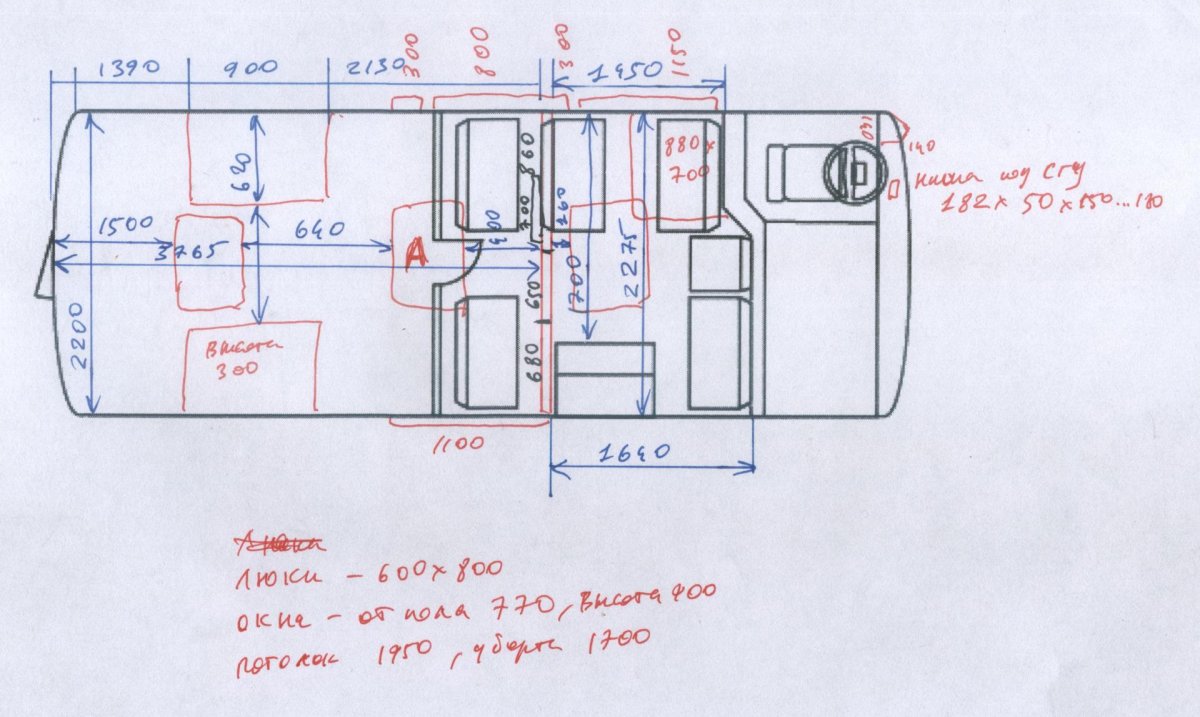 300
800
300
1150
1390
900
2130
1450
140
620
860
880 x
700
140
ниша под СГУ
182 x 50 x 150...180
1500
640
3765
A
400
700
760
2275
650
700
2200
высота
300
680
1100
1640
Люки
люки - 600 x 800
окна - от пола 770, высота 400
потолок 1950, у борта 1700